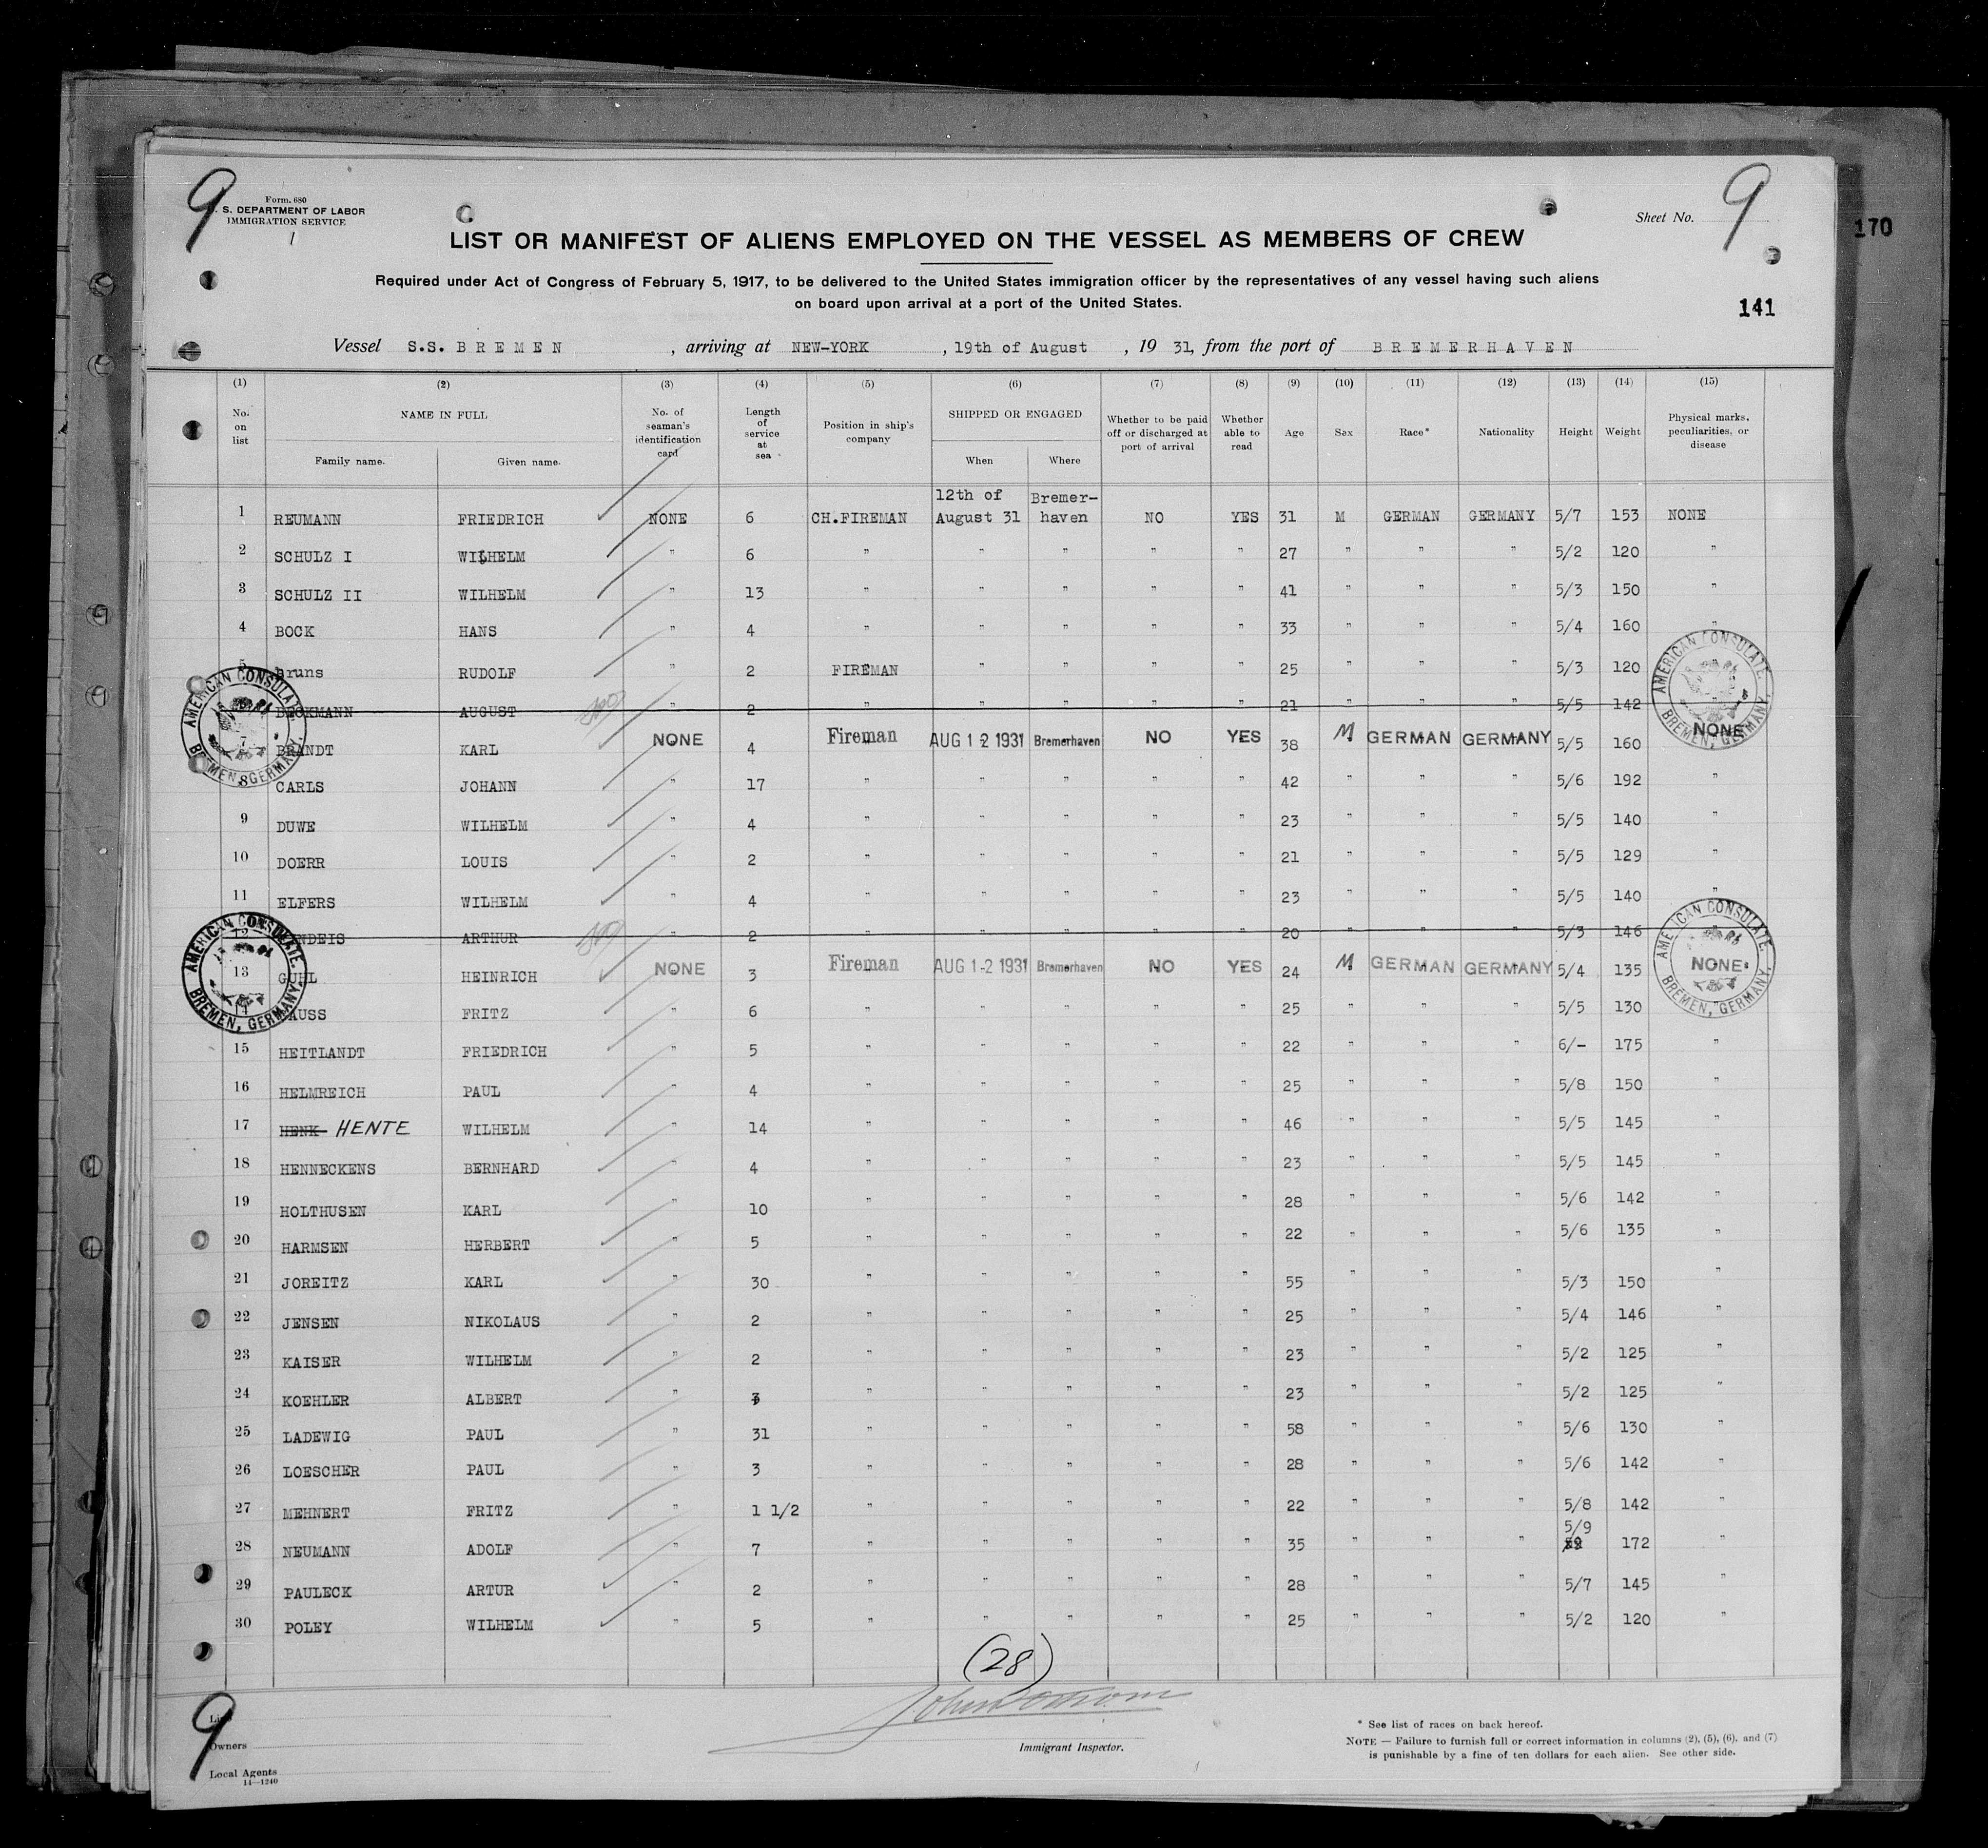 9
Form. 680
S. DEPARTMENT OF LABOR
IMMIGRATION SERVICE
1
C.
Sheet No. 9
170
LIST OR MANIFEST OF ALIENS EMPLOYED ON THE VESSEL AS MEMBERS OF CREW
Required under Act of Congress of February 5, 1917, to be delivered to the United States immigration officer by the representatives of any vessel having such aliens
on board upon arrival at a port of the United States.
141
Vessel S.S. BREMEN, arriving at NEW-YORK, 19th of August, 19 31, from the port of BREMERHAVEN
(1) (2) (3) (4) (5) (6) (7) (8) (9) (10) (11) (12) (13) (14) (15)
No. on list
NAME IN FULL
Family name. Given name.
No. of seaman's identification card
Length of service at sea
Position in ship's company
SHIPPED OR ENGAGED
When Where
Whether to be paid off or discharged at port of arrival
Whether able to read
Age
Sex
Race*
Nationality
Height
Weight
Physical marks, peculiarities, or disease
1 REUMANN FRIEDRICH NONE 6 CH.FIREMAN 12th of August 31 Bremer-haven NO YES 31 M GERMAN GERMANY 5/7 153 NONE
2 SCHULZ I WILHELM " 6 " " " " " 27 " " " 5/2 120 "
3 SCHULZ II WILHELM " 13 " " " " " 41 " " " 5/3 150 "
4 BOCK HANS " 4 " " " " " 33 " " " 5/4 160 "
5 Bruns RUDOLF " 2 FIREMAN " " " " 25 " " " 5/3 120
AUGUST " 2 " " " " " 21 " " " 5/5 142 "
7 BRANDT KARL NONE 4 Fireman AUG 12 1931 Bremerhaven NO YES 38 M GERMAN GERMANY 5/5 160 NONE
8 CARLS JOHANN " 17 " " " " " 42 " " " 5/6 192 "
9 DUWE WILHELM " 4 " " " " " 23 " " " 5/5 140 "
10 DOERR LOUIS " 2 " " " " " 21 " " " 5/5 129 "
11 ELFERS WILHELM " 4 " " " " " 23 " " " 5/5 140 "
12 ARTHUR " 2 " " " " " 20 " " " 5/3 146
13 GUHL HEINRICH NONE 3 Fireman AUG 12 1931 Bremerhaven NO YES 24 M GERMAN GERMANY 5/4 135 NONE
14 FRITZ " 6 " " " " " 25 " " " 5/5 130 "
15 HEITLANDT FRIEDRICH " 5 " " " " " 22 " " " 6/- 175 "
16 HELMREICH PAUL " 4 " " " " " 25 " " " 5/8 150 "
17 HENK HENTE WILHELM " 14 " " " " " 46 " " " 5/5 145 "
18 HENNECKENS BERNHARD " 4 " " " " " 23 " " " 5/5 145 "
19 HOLTHUSEN KARL " 10 " " " " " 28 " " " 5/6 142 "
20 HARMSEN HERBERT " 5 " " " " " 22 " " " 5/6 135 "
21 JOREITZ KARL " 30 " " " " " 55 " " " 5/3 150 "
22 JENSEN NIKOLAUS " 2 " " " " " 25 " " " 5/4 146 "
23 KAISER WILHELM " 2 " " " " " 23 " " " 5/2 125 "
24 KOEHLER ALBERT " 3 " " " " " 23 " " " 5/2 125 "
25 LADEWIG PAUL " 31 " " " " " 58 " " " 5/6 130 "
26 LOESCHER PAUL " 3 " " " " " 28 " " " 5/6 142 "
27 MEHNERT FRITZ " 1 1/2 " " " " " 22 " " " 5/8 142 "
28 NEUMANN ADOLF " 7 " " " " " 35 " " " 5/9 172 "
29 PAULECK ARTUR " 2 " " " " " 28 " " " 5/7 145 "
30 POLEY WILHELM " 5 " " " " " 25 " " " 5/2 120 "
AMERICAN CONSULATE. BREMEN, GERMANY.
AMERICAN CONSULATE. BREMEN, GERMANY.
AMERICAN CONSULATE. BREMEN, GERMANY.
AMERICAN CONSULATE. BREMEN, GERMANY.
(28)
Immigrant Inspector.
9
Owners
Local Agents
14—1240
* See list of races on back hereof.
NOTE — Failure to furnish full or correct information in columns (2), (5), (6), and (7)
is punishable by a fine of ten dollars for each alien. See other side.